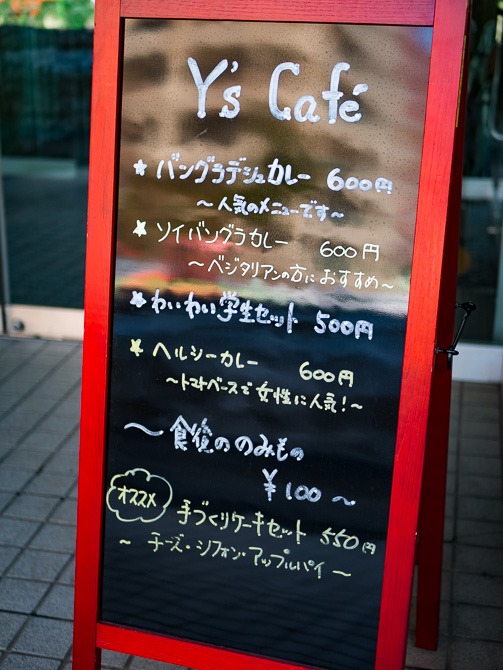 Y's Café
★ バングラデシュカレー 600円
～人気のメニューです～
★ ソイバングラカレー 600円
～ベジタリアンの方におすすめ～
★ わいわい学生セット 500円
★ ヘルシーカレー 600円
～トマトベースで女性に人気!～
～食後ののみもの
¥100～
オススメ 手づくりケーキセット 550円
～チーズ・シフォン・アップルパイ～